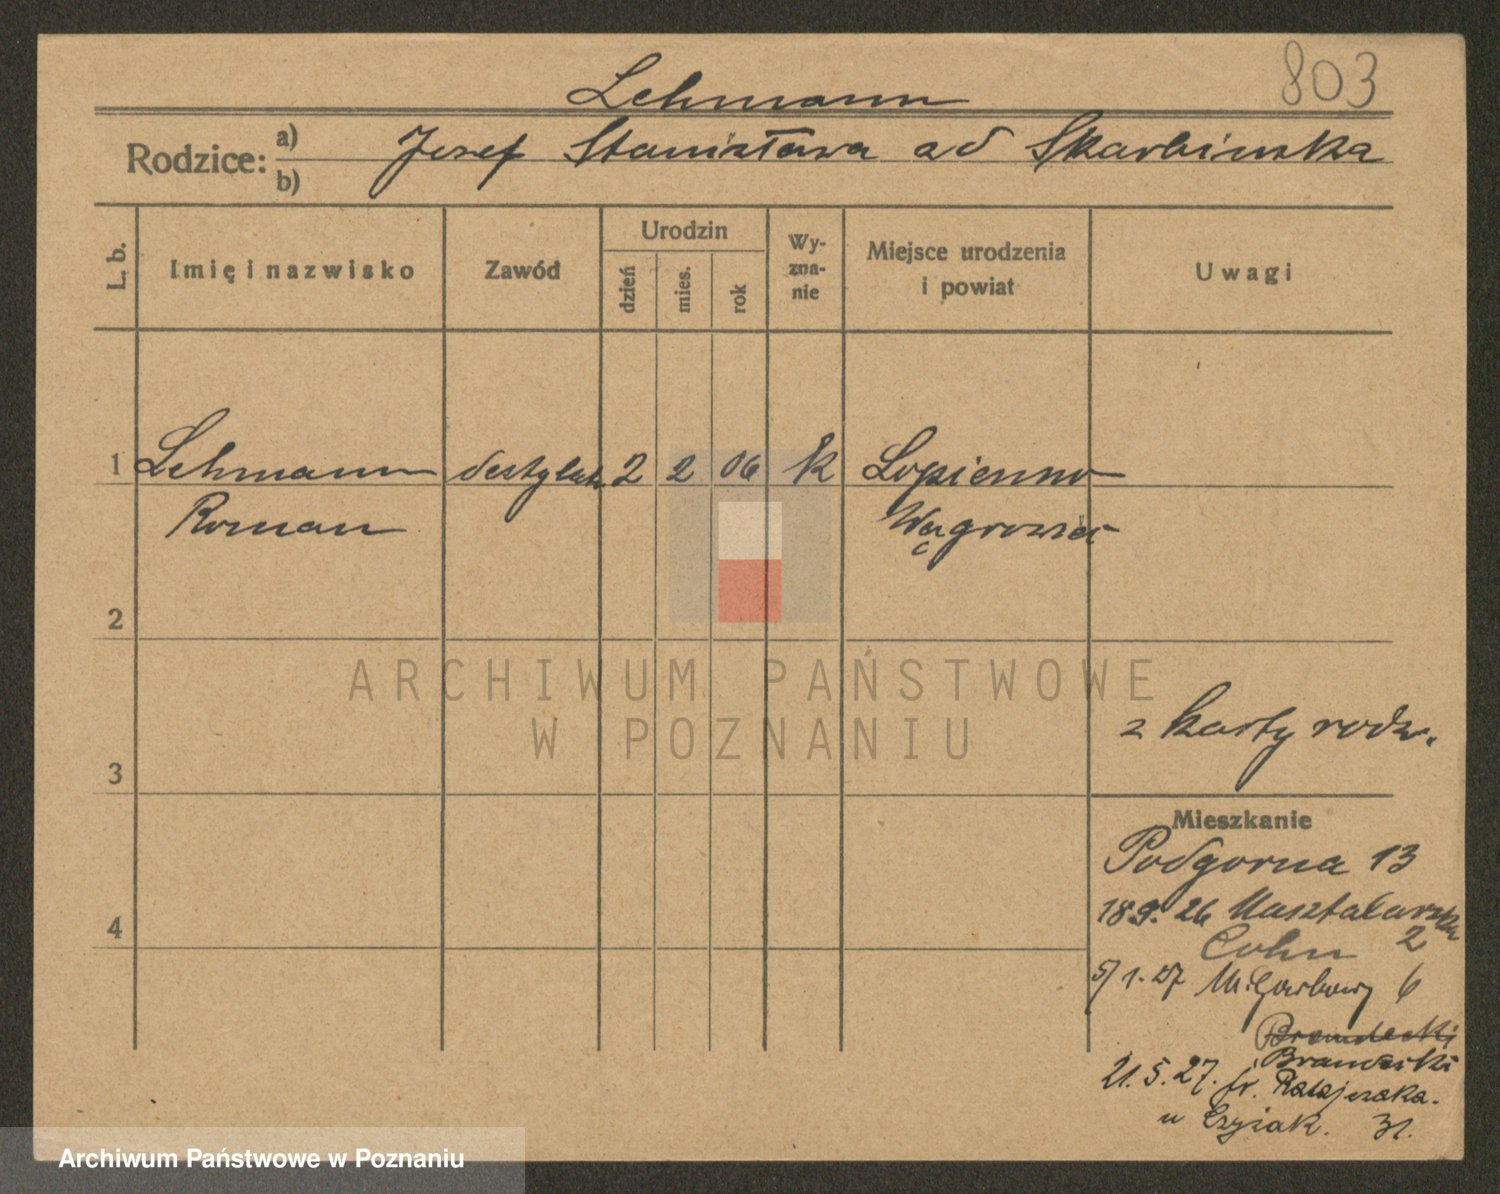 803
Lehmann
Rodzice: a) b) Josef Stanisława ad Skarbinska
L. b.
Imię i nazwisko
Zawód
Urodzin
dzień
mies.
rok
Wy-
zna-
nie
Miejsce urodzenia
i powiat
Uwagi
1 Lehmann destylat. 2 2 06 k Lopienno
Roman Wągrowiec
2
3
4
z karty rodz.
Mieszkanie
Podgorna 13
18 9. 26 Masztalarska
Cohn 2
5/1. 27 M. Garbary 6
Brandecki
21. 5. 27. fr. Ratajczaka.
u Czysiak. 31.
ARCHIWUM PAŃSTWOWE
W POZNANIU
Archiwum Państwowe w Poznaniu